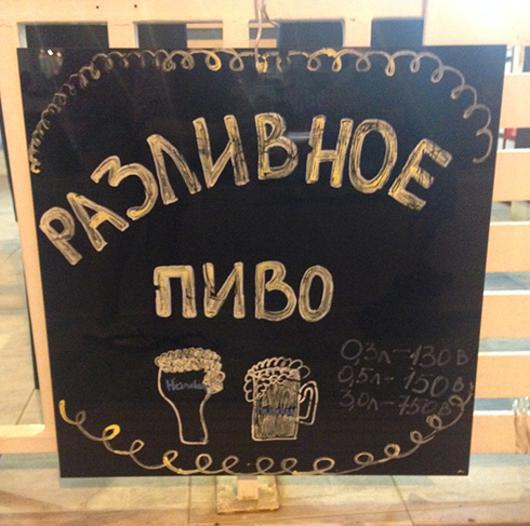 РАЗЛИВНОЕ
ПИВО
0,3л-130 В
0,5л-150 В
3,0л-750 В